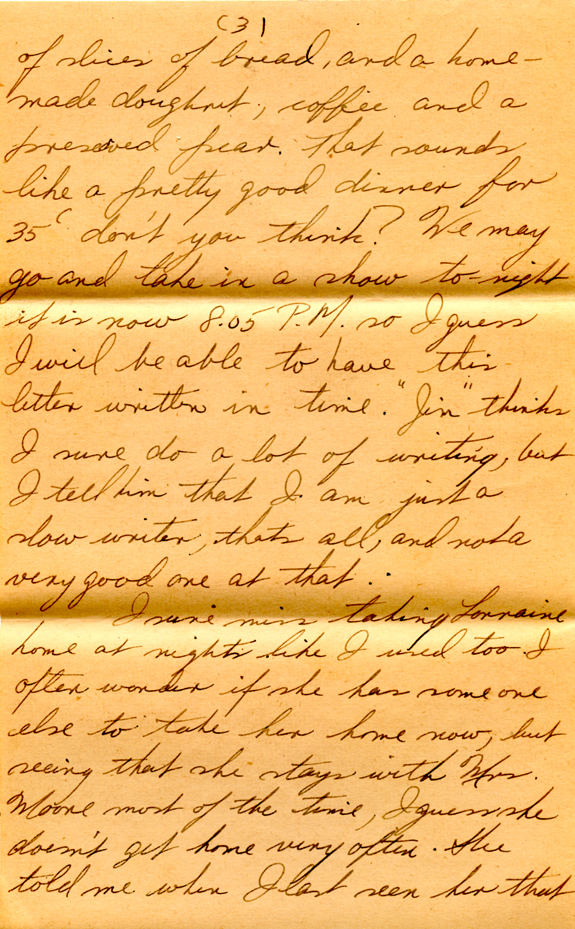 (3)
of slices of bread, and a home-
made doughnut, coffee and a
preserved pear. That sounds
like a pretty good dinner for
35¢ don't you think? We may
go and take in a show to-night
it is now 8.05 P.M. so I guess
I will be able to have this
letter written in time. "Jin" thinks
I sure do a lot of writing, but
I tell him that I am just a
slow writer, thats all, and not a
very good one at that.
I sure miss taking Lorraine
home at nights like I used too. I
often wonder if she has some one
else to take her home now, but
seeing that she stays with Mrs.
Moore most of the time, I guess she
doesn't get home very often. She
told me when I last seen her that